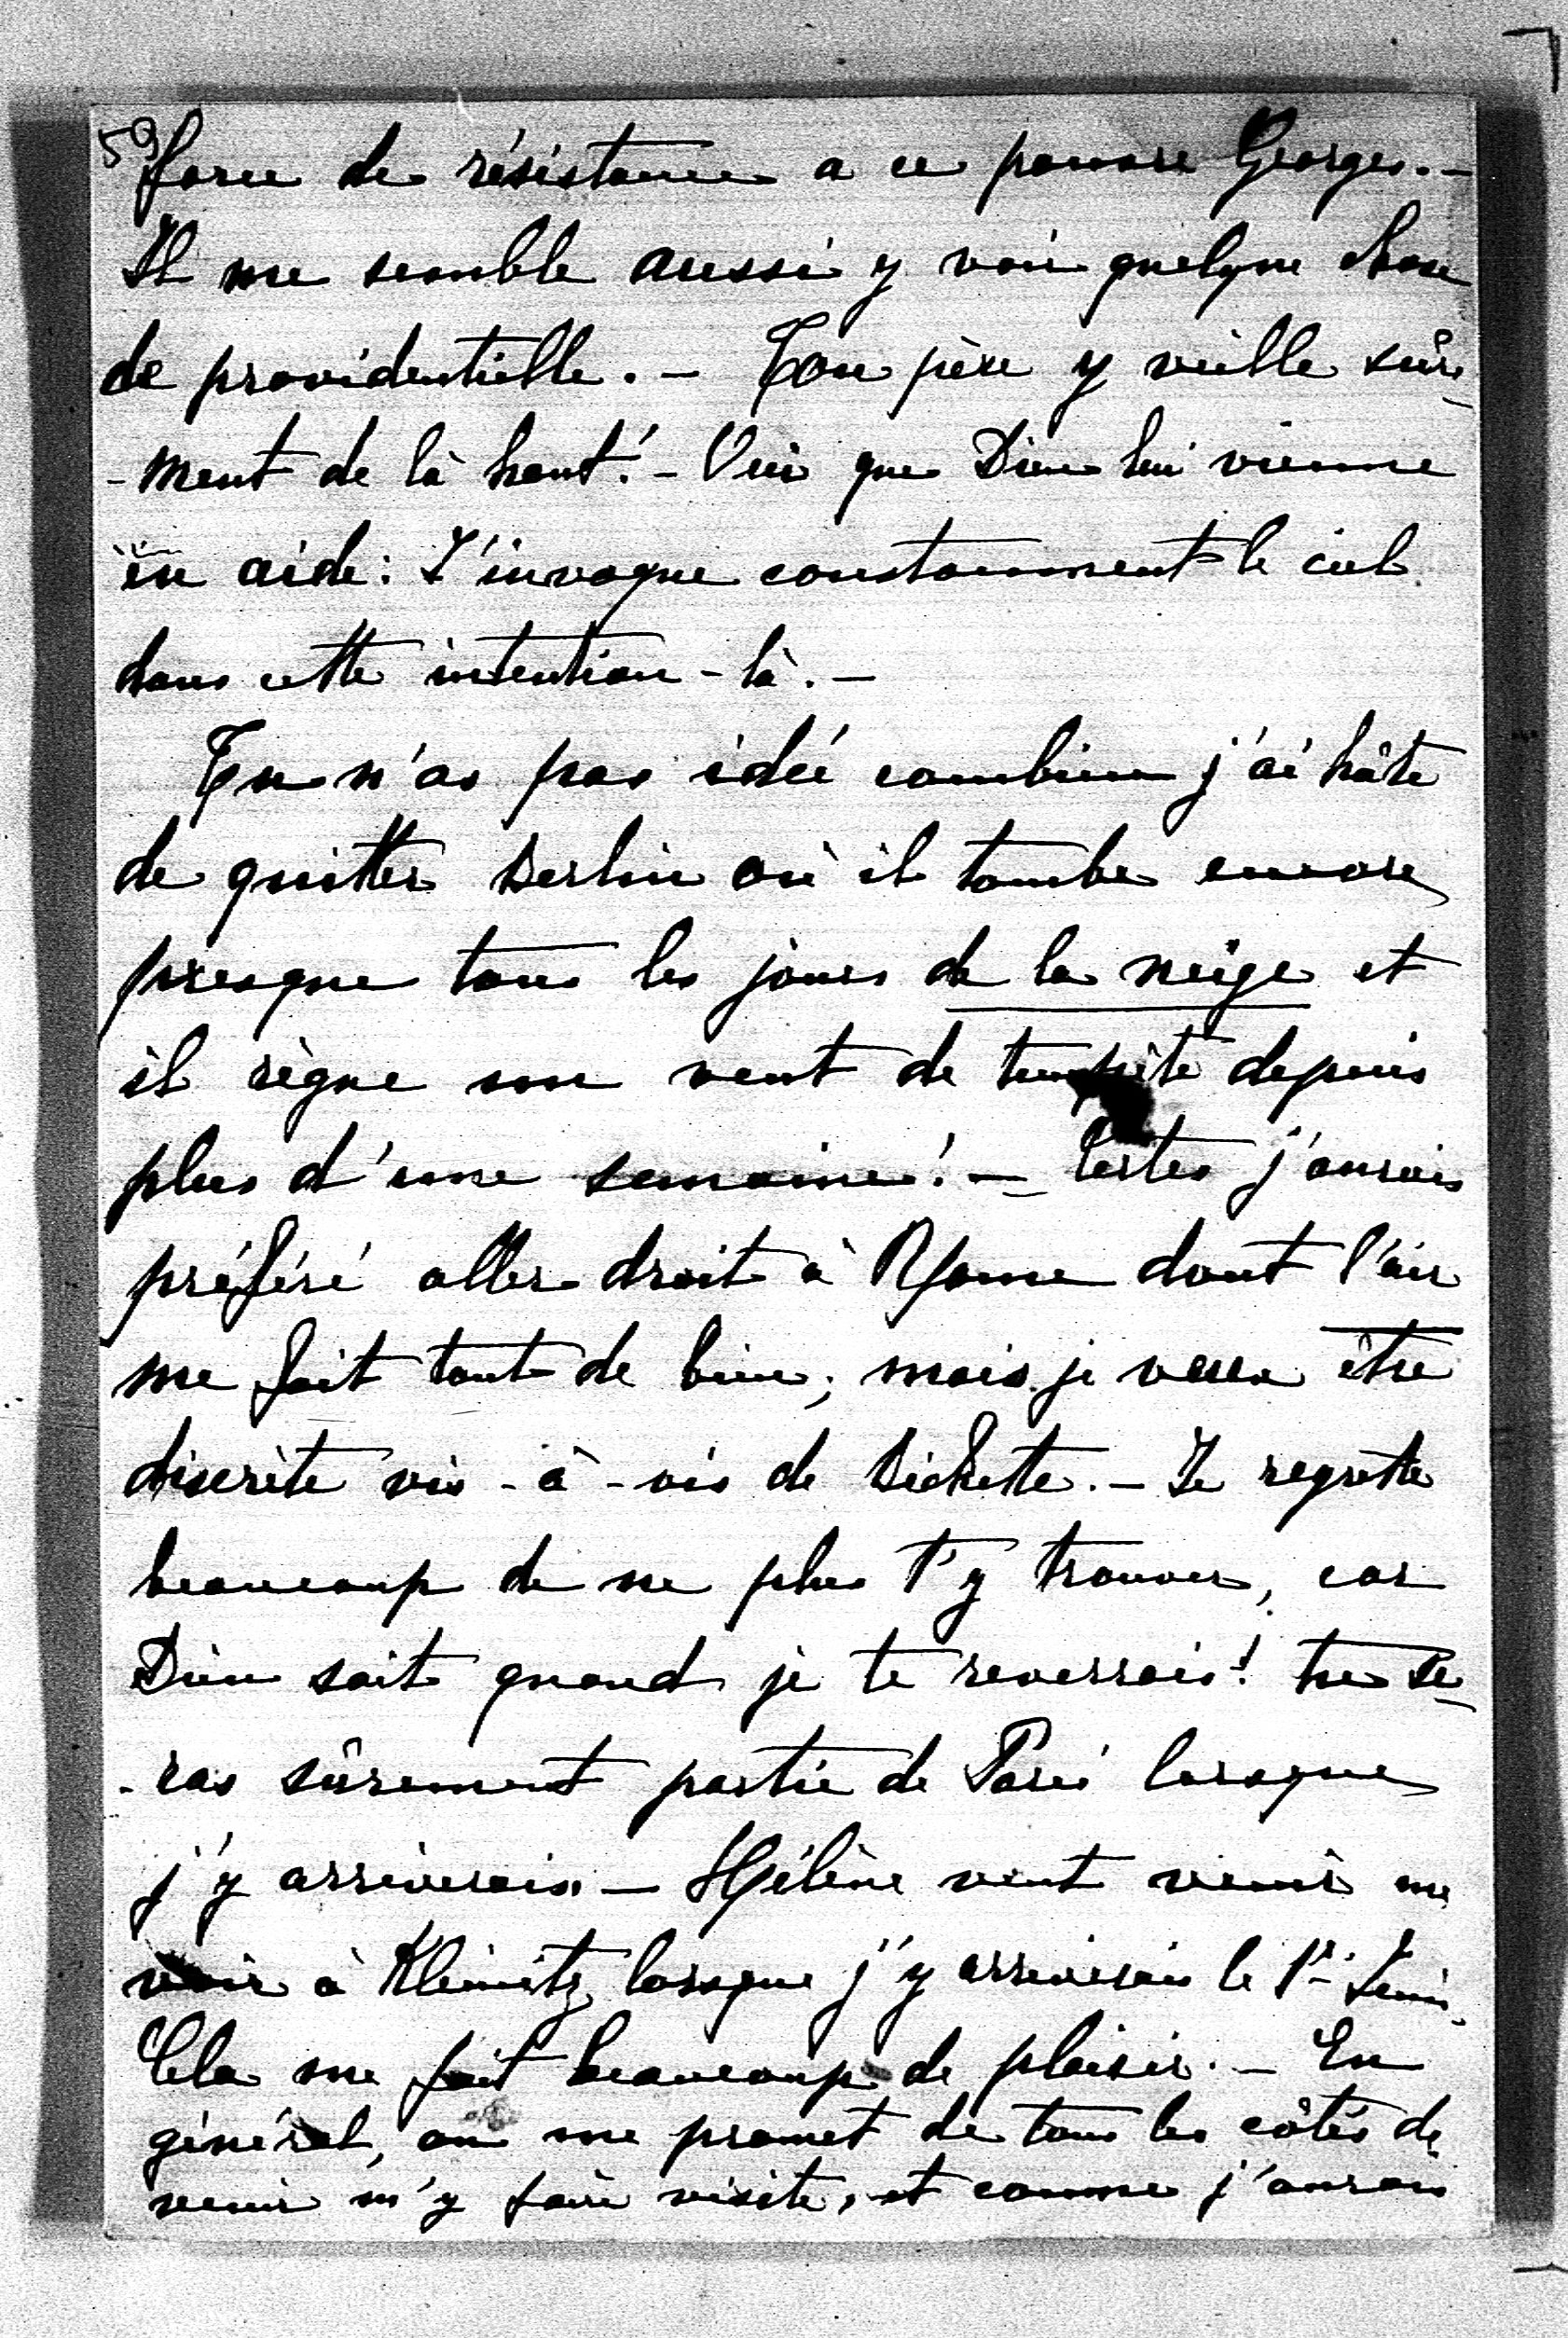 59
force de résistance a ce pauvre Georges. —
Il me semble aussi y voir quelque chose
de providentielle. — Ton père y veille sûre-
-ment de là haut! — Oui que Dieu lui vienne
en aide: J'invoque constamment le ciel
dans cette intention-là. —
Tu n'as pas idée combien j'ai hâte
de quitter Berlin où il tombe encore
presque tous les jours de la neige et
il règne un vent de tempête depuis
plus d'une semaine! — Certes j'aurais
préféré aller droit à Rome dont l'air
me fait tant de bien; mais je veux être
discrète vis-à-vis de Bichette. — Je regrette
beaucoup de ne plus t'y trouver, car
Dieu sait quand je te reverrais! tu se-
-ras sûrement partie de Paris lorsque
j'y arriverais — Hélène veut venir me
voir à Kleinitz lorsque j'y arriverais le 1er Juin.
Cela me fait beaucoup de plaisir. — En
général, on me promet de tous les côtés de
venir m'y faire visite, et comme j'aurais